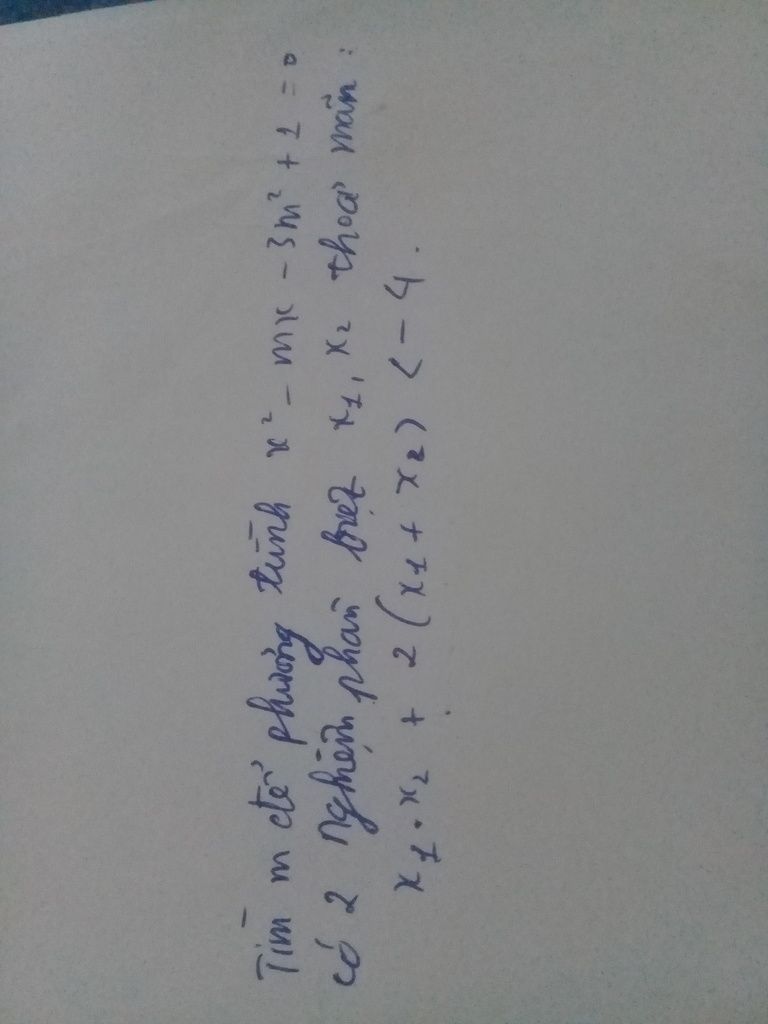 Tìm m để phương trình x² - mx - 3m² + 2 = 0
có 2 nghiệm phân biệt x₁, x₂ thoả mãn :
x₁ . x₂ + 2 ( x₁ + x₂ ) < - 4 .